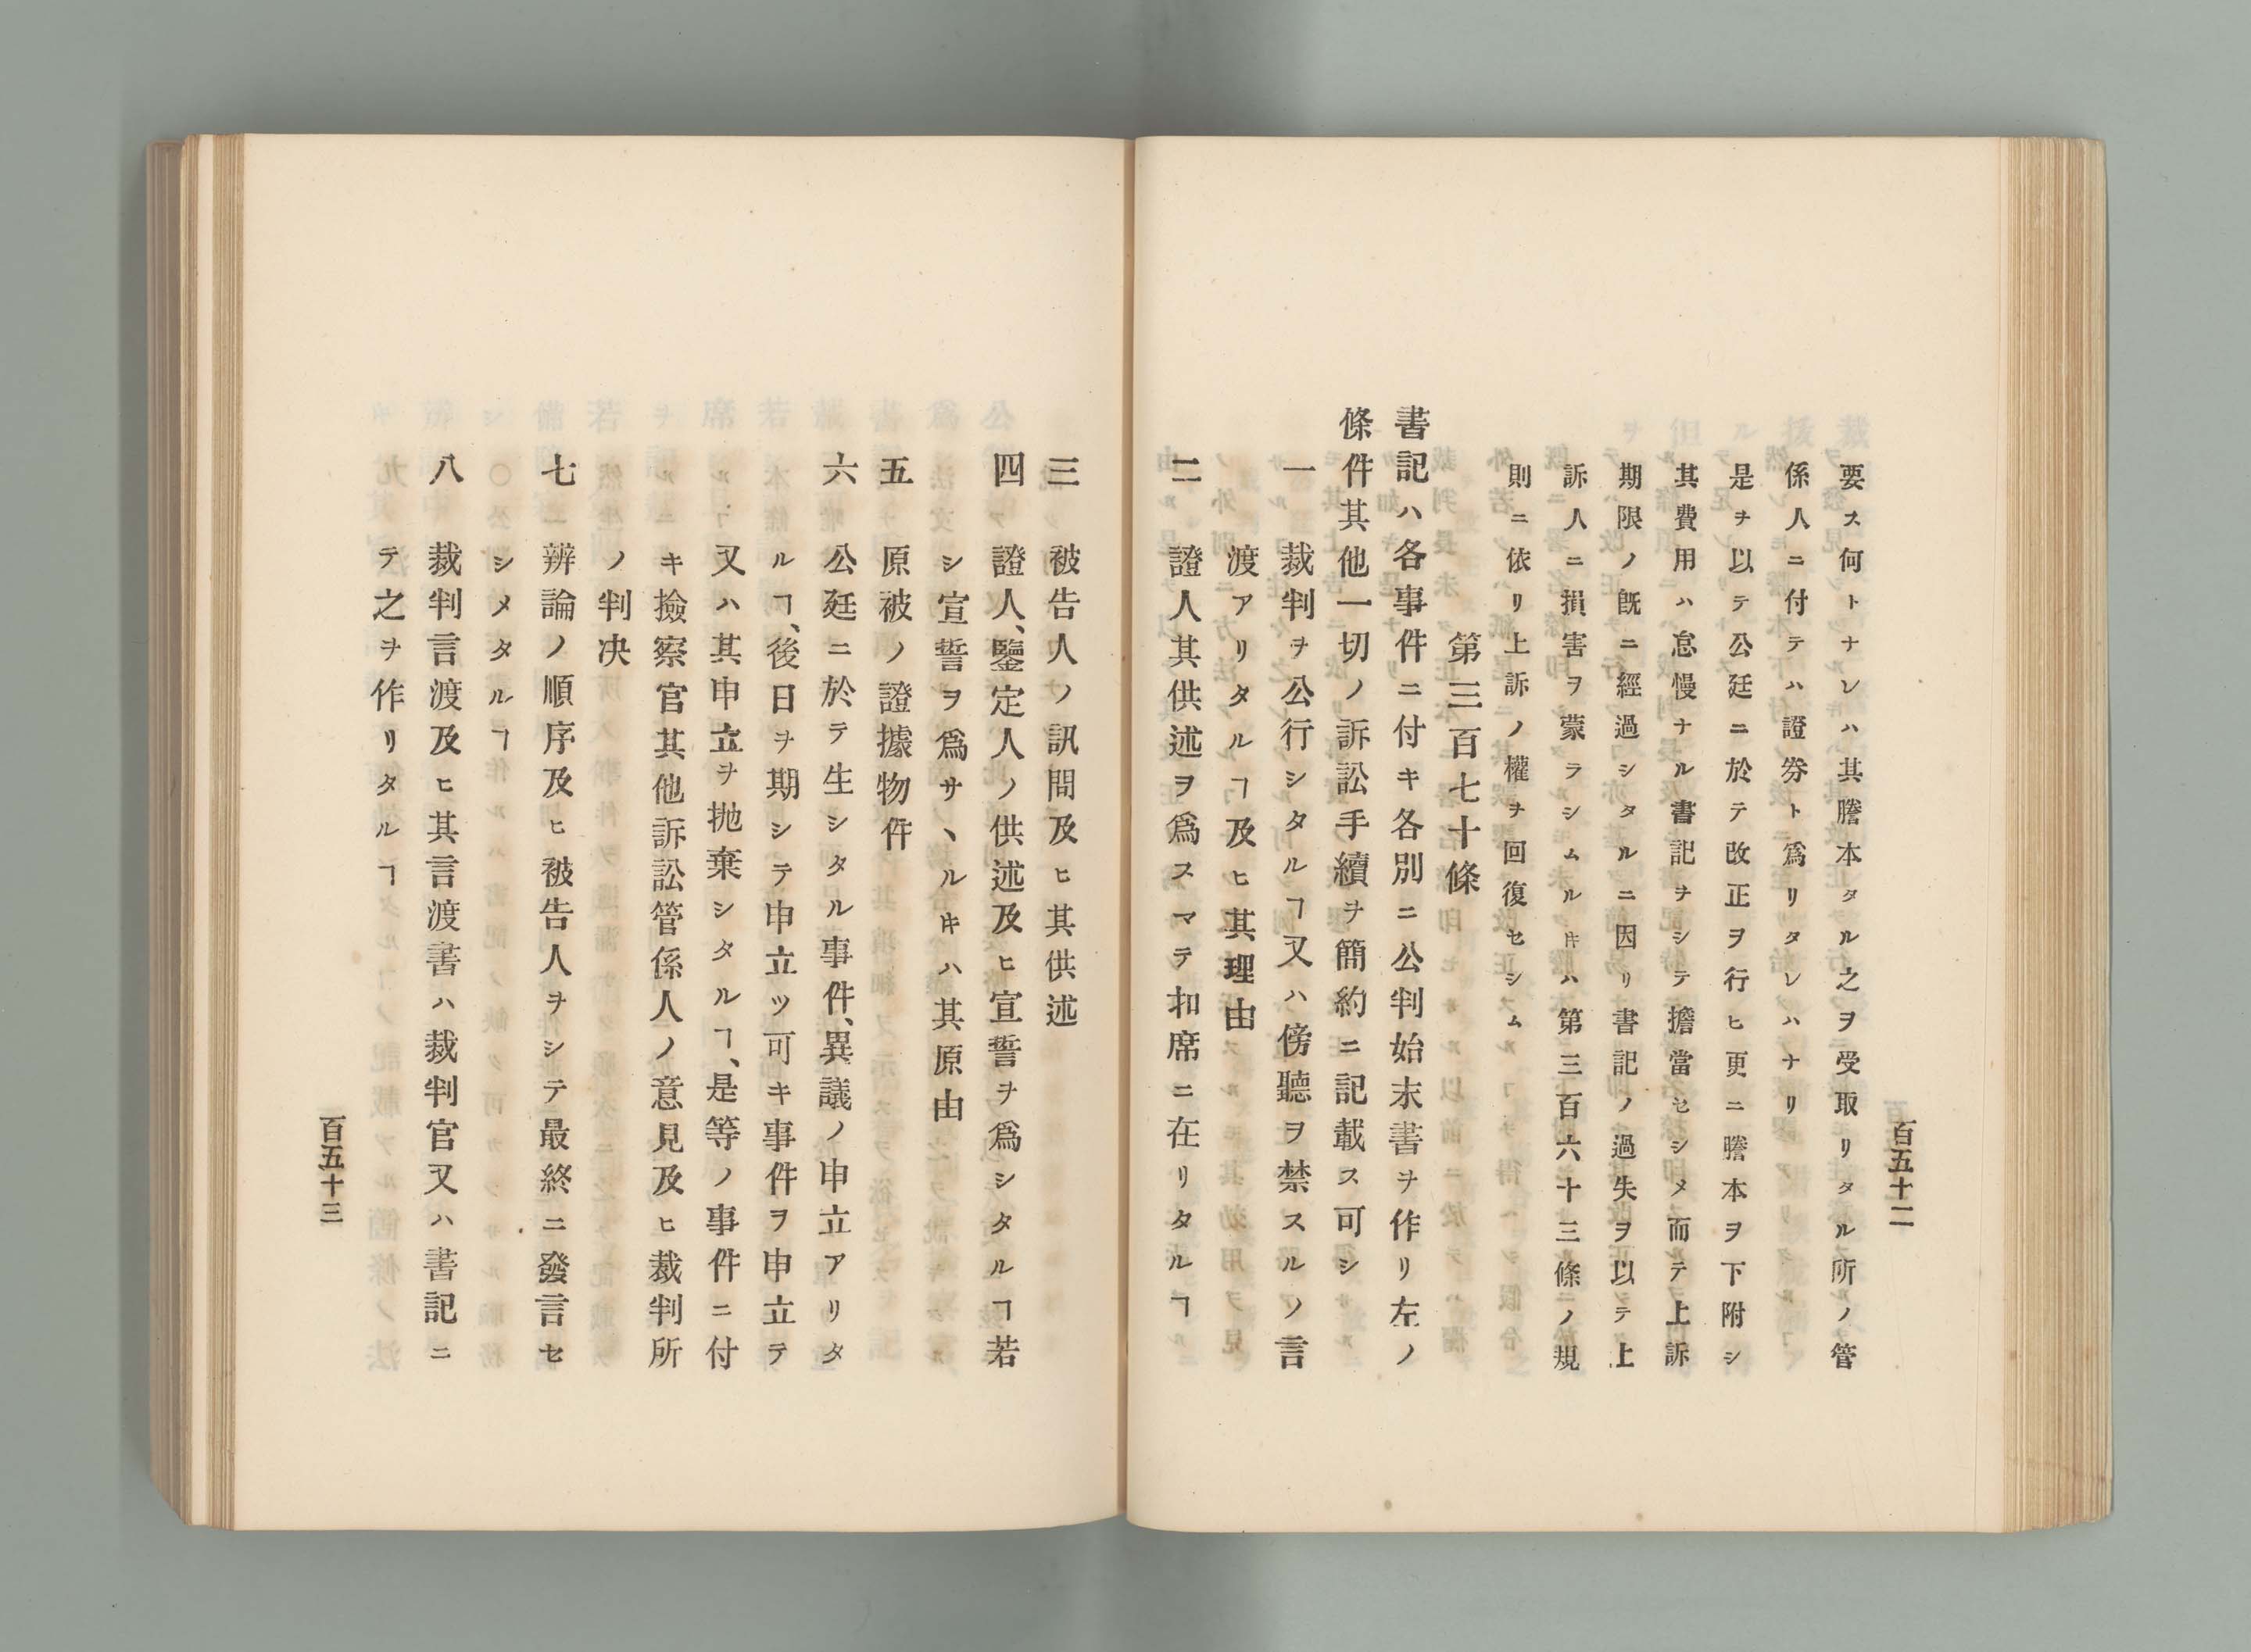 百五十二
要ス何トナレハ其謄本タル之ヲ受取リタル所ノ管
係人ニ付テハ證劵ト爲リタレハナリ
是ヲ以テ公廷ニ於テ改正ヲ行ヒ更ニ謄本ヲ下附シ
其費用ハ怠慢ナル書記ヲシテ擔當セシメ而テ上訴
期限ノ既ニ經過シタルニ因リ書記ノ過失ヲ以テ上
訴人ニ損害ヲ蒙ラシムルヰハ第三百六十三條ノ規
則ニ依リ上訴ノ權ヲ回復セシム
第三百七十條
書記ハ各事件ニ付キ各別ニ公判始末書ヲ作リ左ノ
條件其他一切ノ訴訟手續ヲ簡約ニ記載ス可シ
一 裁判ヲ公行シタルヿ又ハ傍聽ヲ禁スルノ言
渡アリタルヿ及ヒ其理由
二 證人其供述ヲ爲スマテ扣席ニ在リタルヿ
三 被告人ノ訊問及ヒ其供述
四 證人、鑒定人ノ供述及ヒ宣誓ヲ爲シタルヿ若
シ宣誓ヲ爲サヽルヰハ其原由
五 原被ノ證據物件
六 公廷ニ於テ生シタル事件、異議ノ申立アリタ
ルヿ、後日ヲ期シテ申立ツ可キ事件ヲ申立テ
又ハ其申立ヲ抛棄シタルヿ、是等ノ事件ニ付
キ撿察官其他訴訟管係人ノ意見及ヒ裁判所
ノ判决
七 辨論ノ順序及ヒ被告人ヲシテ最終ニ發言セ
シメタルヿ
八 裁判言渡及ヒ其言渡書ハ裁判官又ハ書記ニ
テ之ヲ作リタルヿ
百五十三